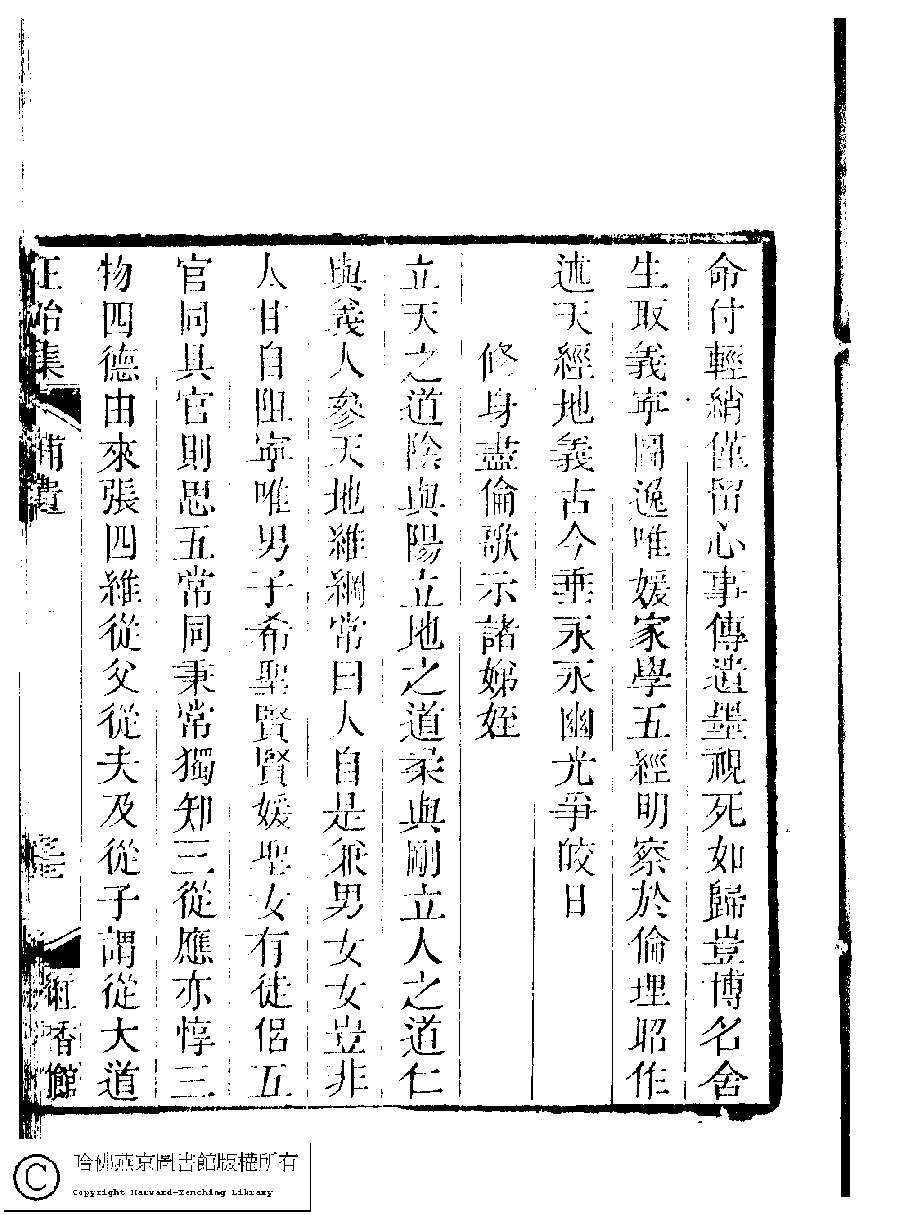 命付輕綃僅留心事傳遺墨視死如歸豈博名舍
生取義寧圖逸唯媛家學五經明察於倫理昭作
述天經地義古今垂永永幽光爭皎日
修身盡倫歌示諸娣姪
立天之道陰與陽立地之道柔與剛立人之道仁
與義人參天地維綱常曰人自是兼男女女豈非
人甘自阻寧唯男子希聖賢賢媛聖女有徒侶五
官同具官則思五常同秉常獨知三從應亦惇三
物四德由來張四維從父從夫及從子謂從大道
正始集 補遺 紅香館
哈佛燕京圖書館版權所有
Copyright Harvard-Yenching Library